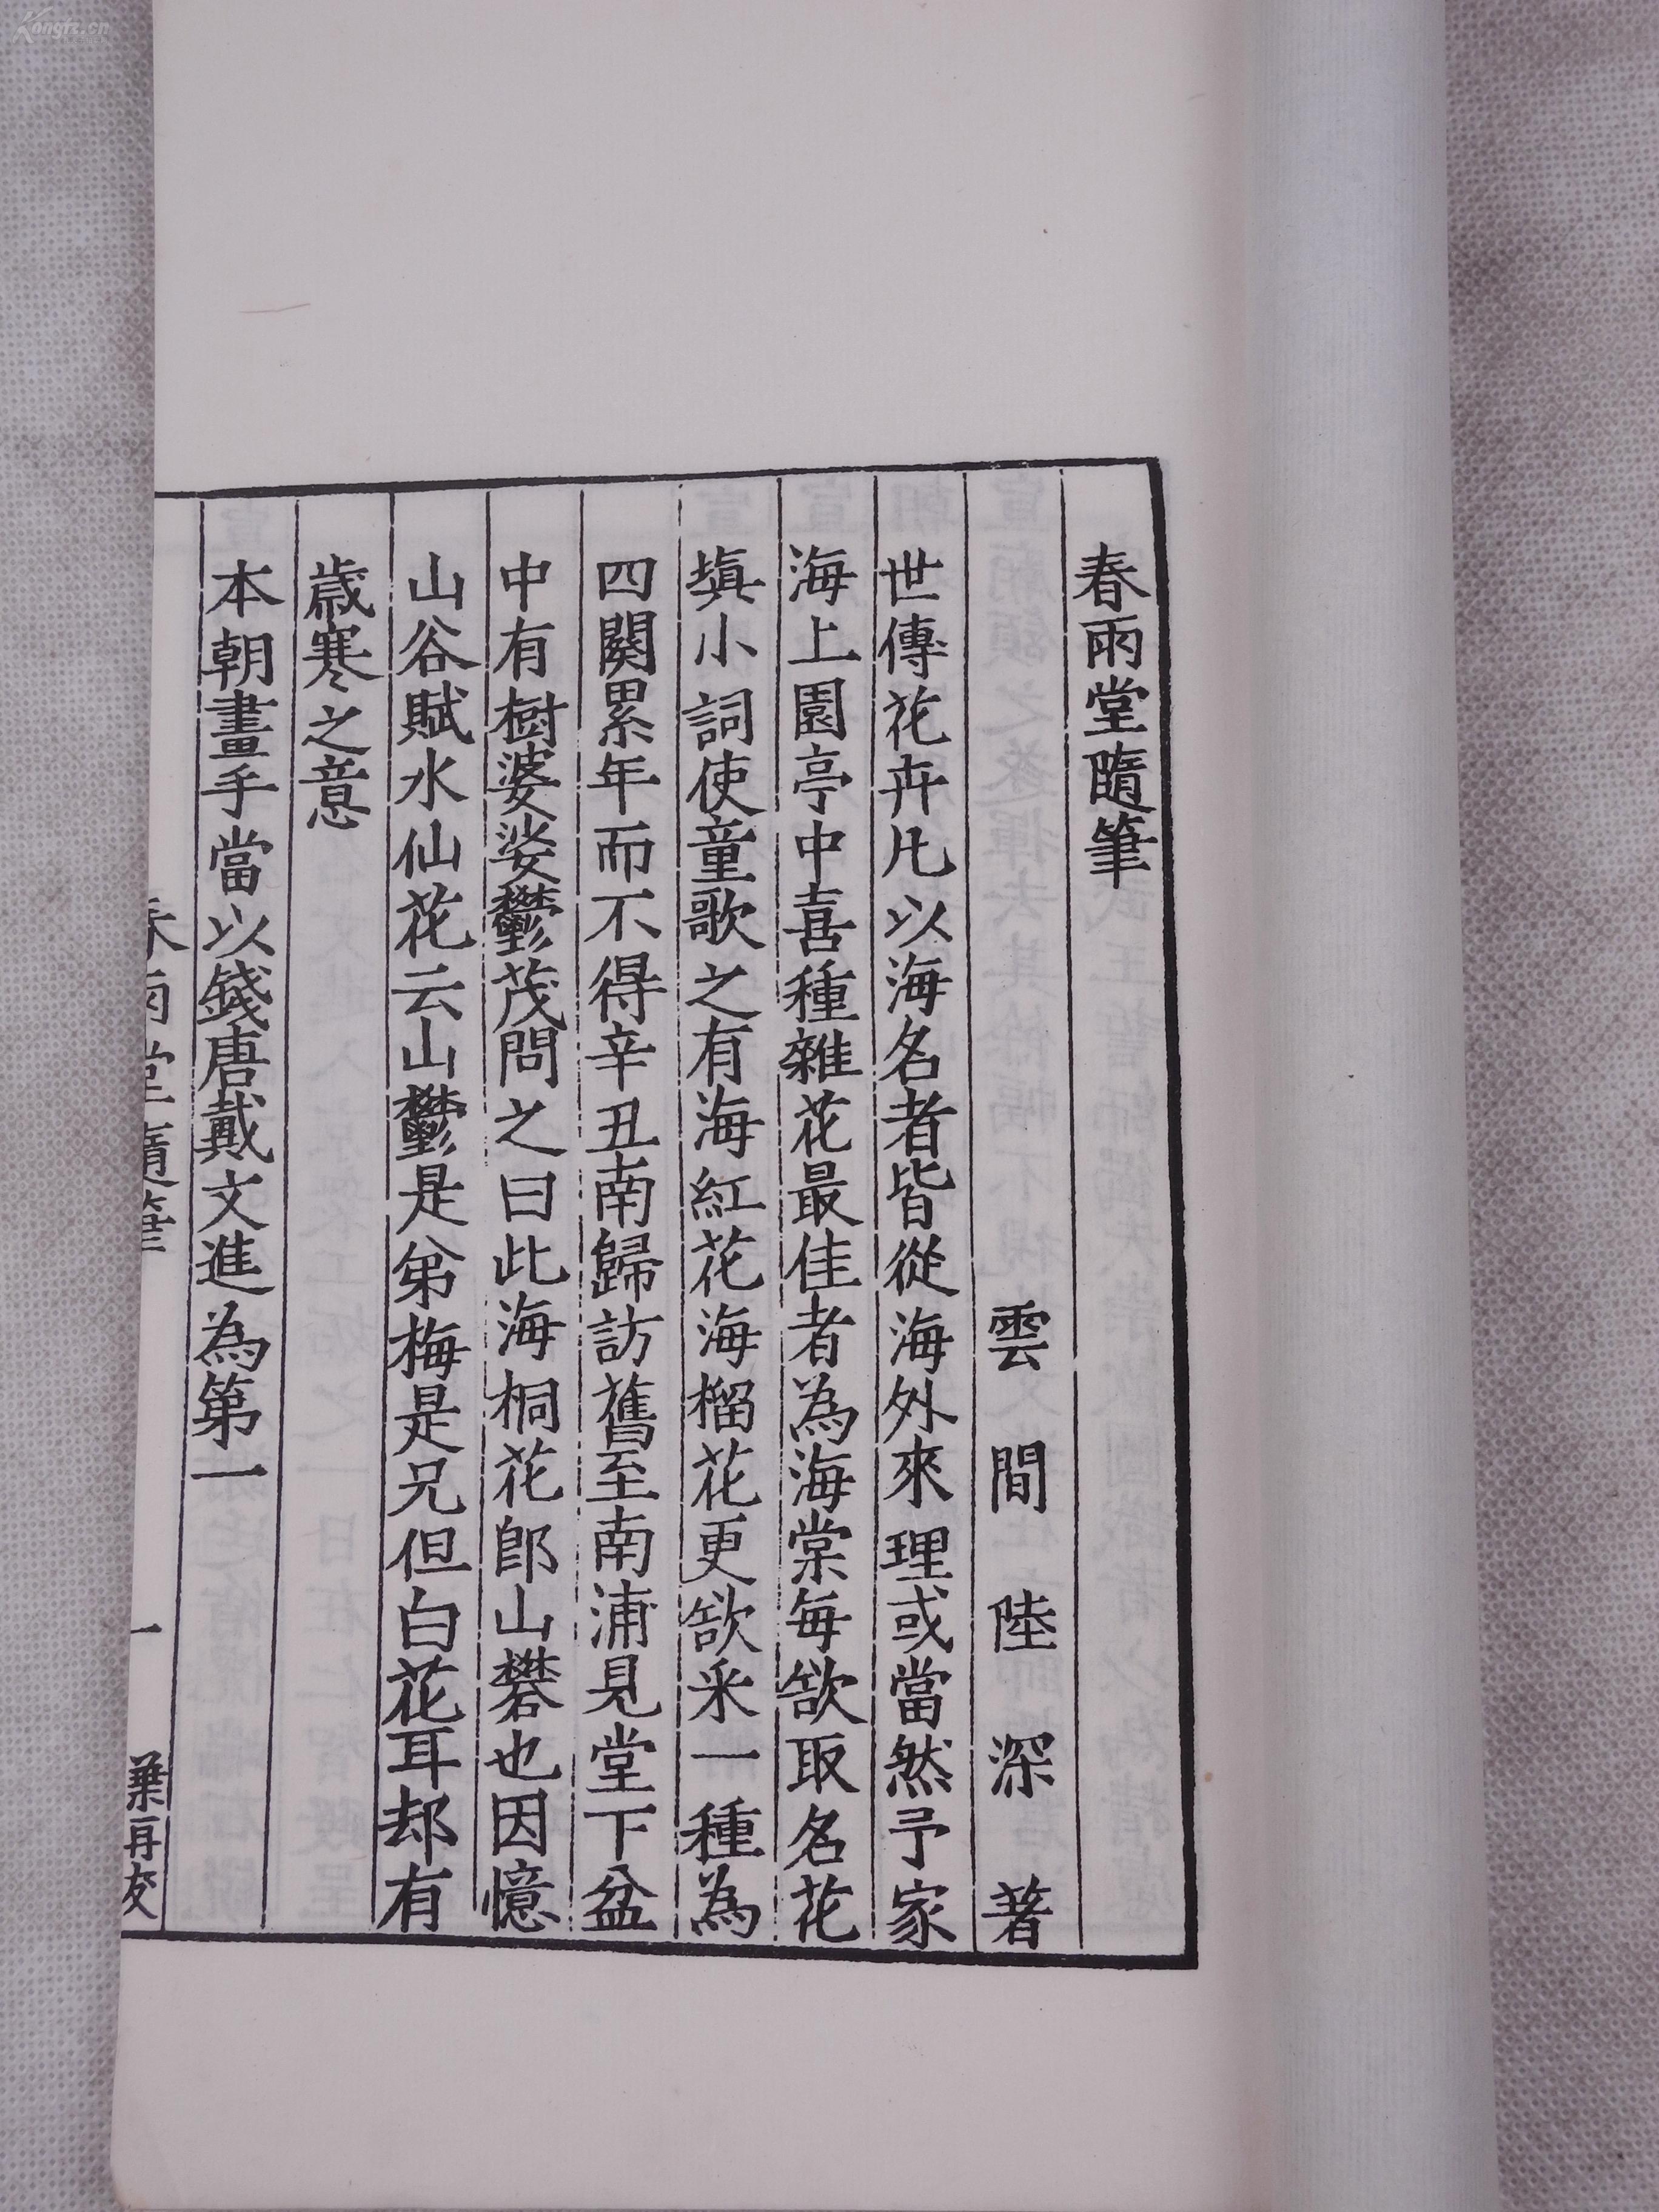 春雨堂隨筆
雲間陸深著
世傳花卉凡以海名者皆從海外來理或當然予家
海上園亭中喜種雜花最佳者為海棠每欲取名花
填小詞使童歌之有海紅花海榴花更欲采一種為
四闋累年而不得辛丑南歸訪舊至南浦見堂下盆
中有樹婆娑鬱茂問之曰此海桐花即山礬也因憶
山谷賦水仙花云山鬱是弟梅是兄但白花耳却有
歲寒之意
本朝畫手當以錢唐戴文進為第一
春雨堂隨筆
一
葉再友
Kongfz.cn